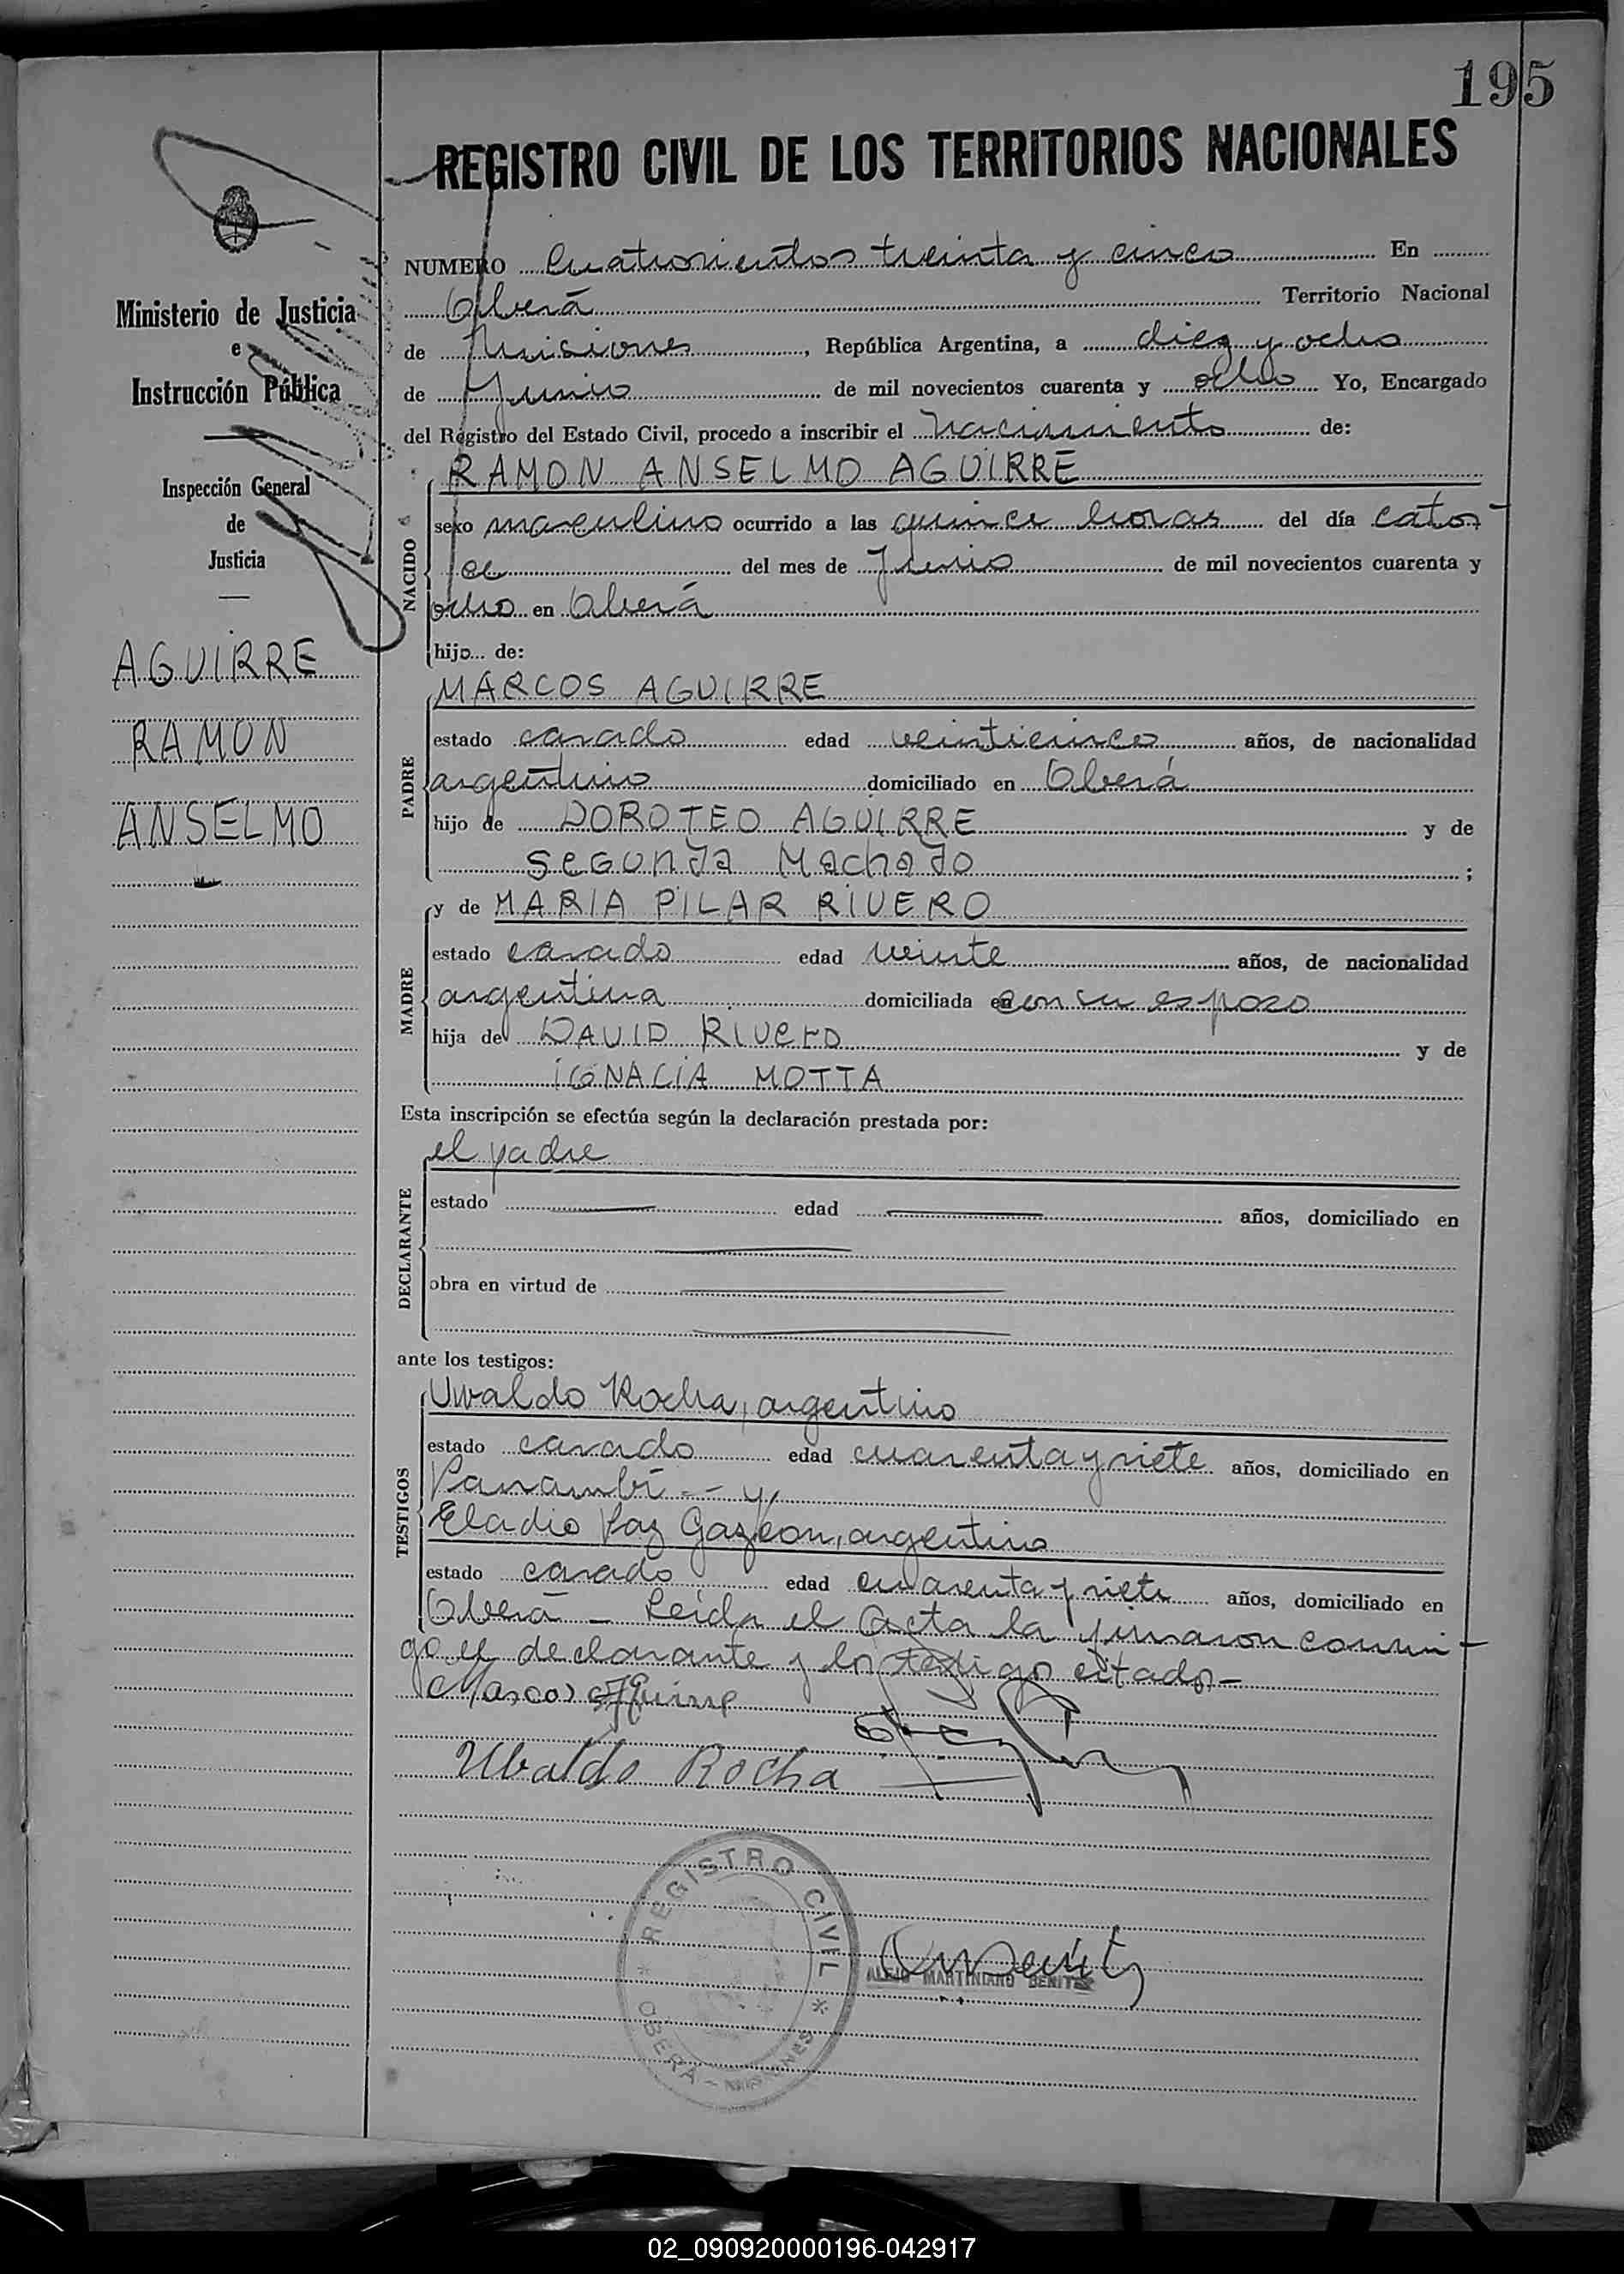 195
REGISTRO CIVIL DE LOS TERRITORIOS NACIONALES
Ministerio de Justicia
e
Instrucción Pública
Inspección General
de
Justicia
AGUIRRE
RAMON
ANSELMO
NUMERO Cuatrocientos treinta y cinco En
Oberá Territorio Nacional
de Misiones, República Argentina, a diez y ocho
de Junio de mil novecientos cuarenta y ocho Yo, Encargado
del Registro del Estado Civil, procedo a inscribir el nacimiento de:
NACIDO
RAMON ANSELMO AGUIRRE
sexo masculino ocurrido a las quince horas del día cator-
ce del mes de Junio de mil novecientos cuarenta y
ocho en Oberá
hijo de:
PADRE
MARCOS AGUIRRE
estado casado edad veinticinco años, de nacionalidad
argentino domiciliado en Oberá
hijo de DOROTEO AGUIRRE y de
SEGUNDA Machado ;
MADRE
y de MARIA PILAR RIVERO
estado casado edad veinte años, de nacionalidad
argentina domiciliada en con su esposo
hija de DAVID RIVERO y de
IGNACIA MOTTA
Esta inscripción se efectúa según la declaración prestada por:
DECLARANTE
el padre
estado edad años, domiciliado en
obra en virtud de
ante los testigos:
TESTIGOS
Uvaldo Rocha, argentino
estado casado edad cuarenta y siete años, domiciliado en
Panambí - y
Eladio Paz Gazcon, argentino
estado casado edad cuarenta y siete años, domiciliado en
Oberá - Leída el Acta la firmaron conmi-
go el declarante y los testigos citados-
Marcos Aguirre
Ubaldo Rocha
REGISTRO CIVIL
OBERA - MISIONES
ALEJO MARTINIANO BENITEZ
02_090920000196-042917